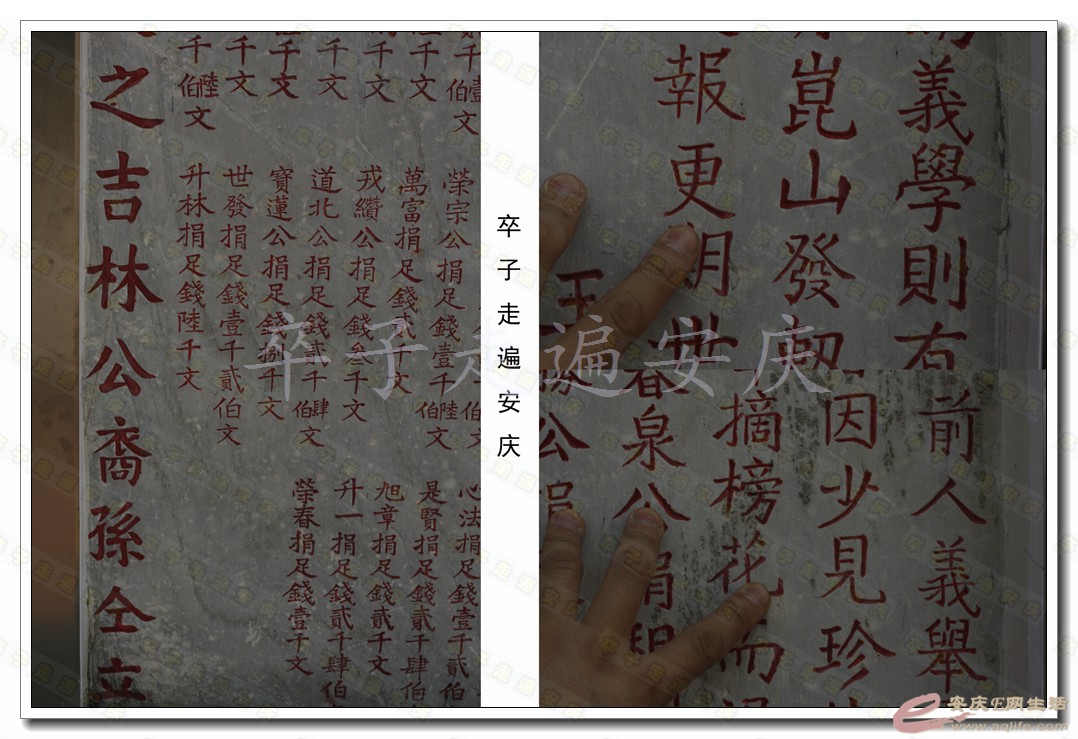 千壹伯文
千文
千文
千文
千文
千文
千陸伯文
榮宗公捐足錢壹千陸伯文
萬富捐足錢貳千文
戎纘公捐足錢叁千文
道北公捐足錢貳千肆伯文
寶蓮公捐足錢捌千文
世發捐足錢壹千貳伯文
升林捐足錢陸千文
心法捐足錢壹千貳伯
是賢捐足錢貳千肆伯
旭章捐足錢貳千文
升一捐足錢貳千肆伯
榮春捐足錢壹千文
之吉林公裔孫仝立
卒子走遍安庆
義學則右
崑山發
報更
世
王
前人義舉
因少見珍
摘榜花而
春泉公捐
公捐
卒子走遍安庆
安庆E网生活
www.aqlife.com